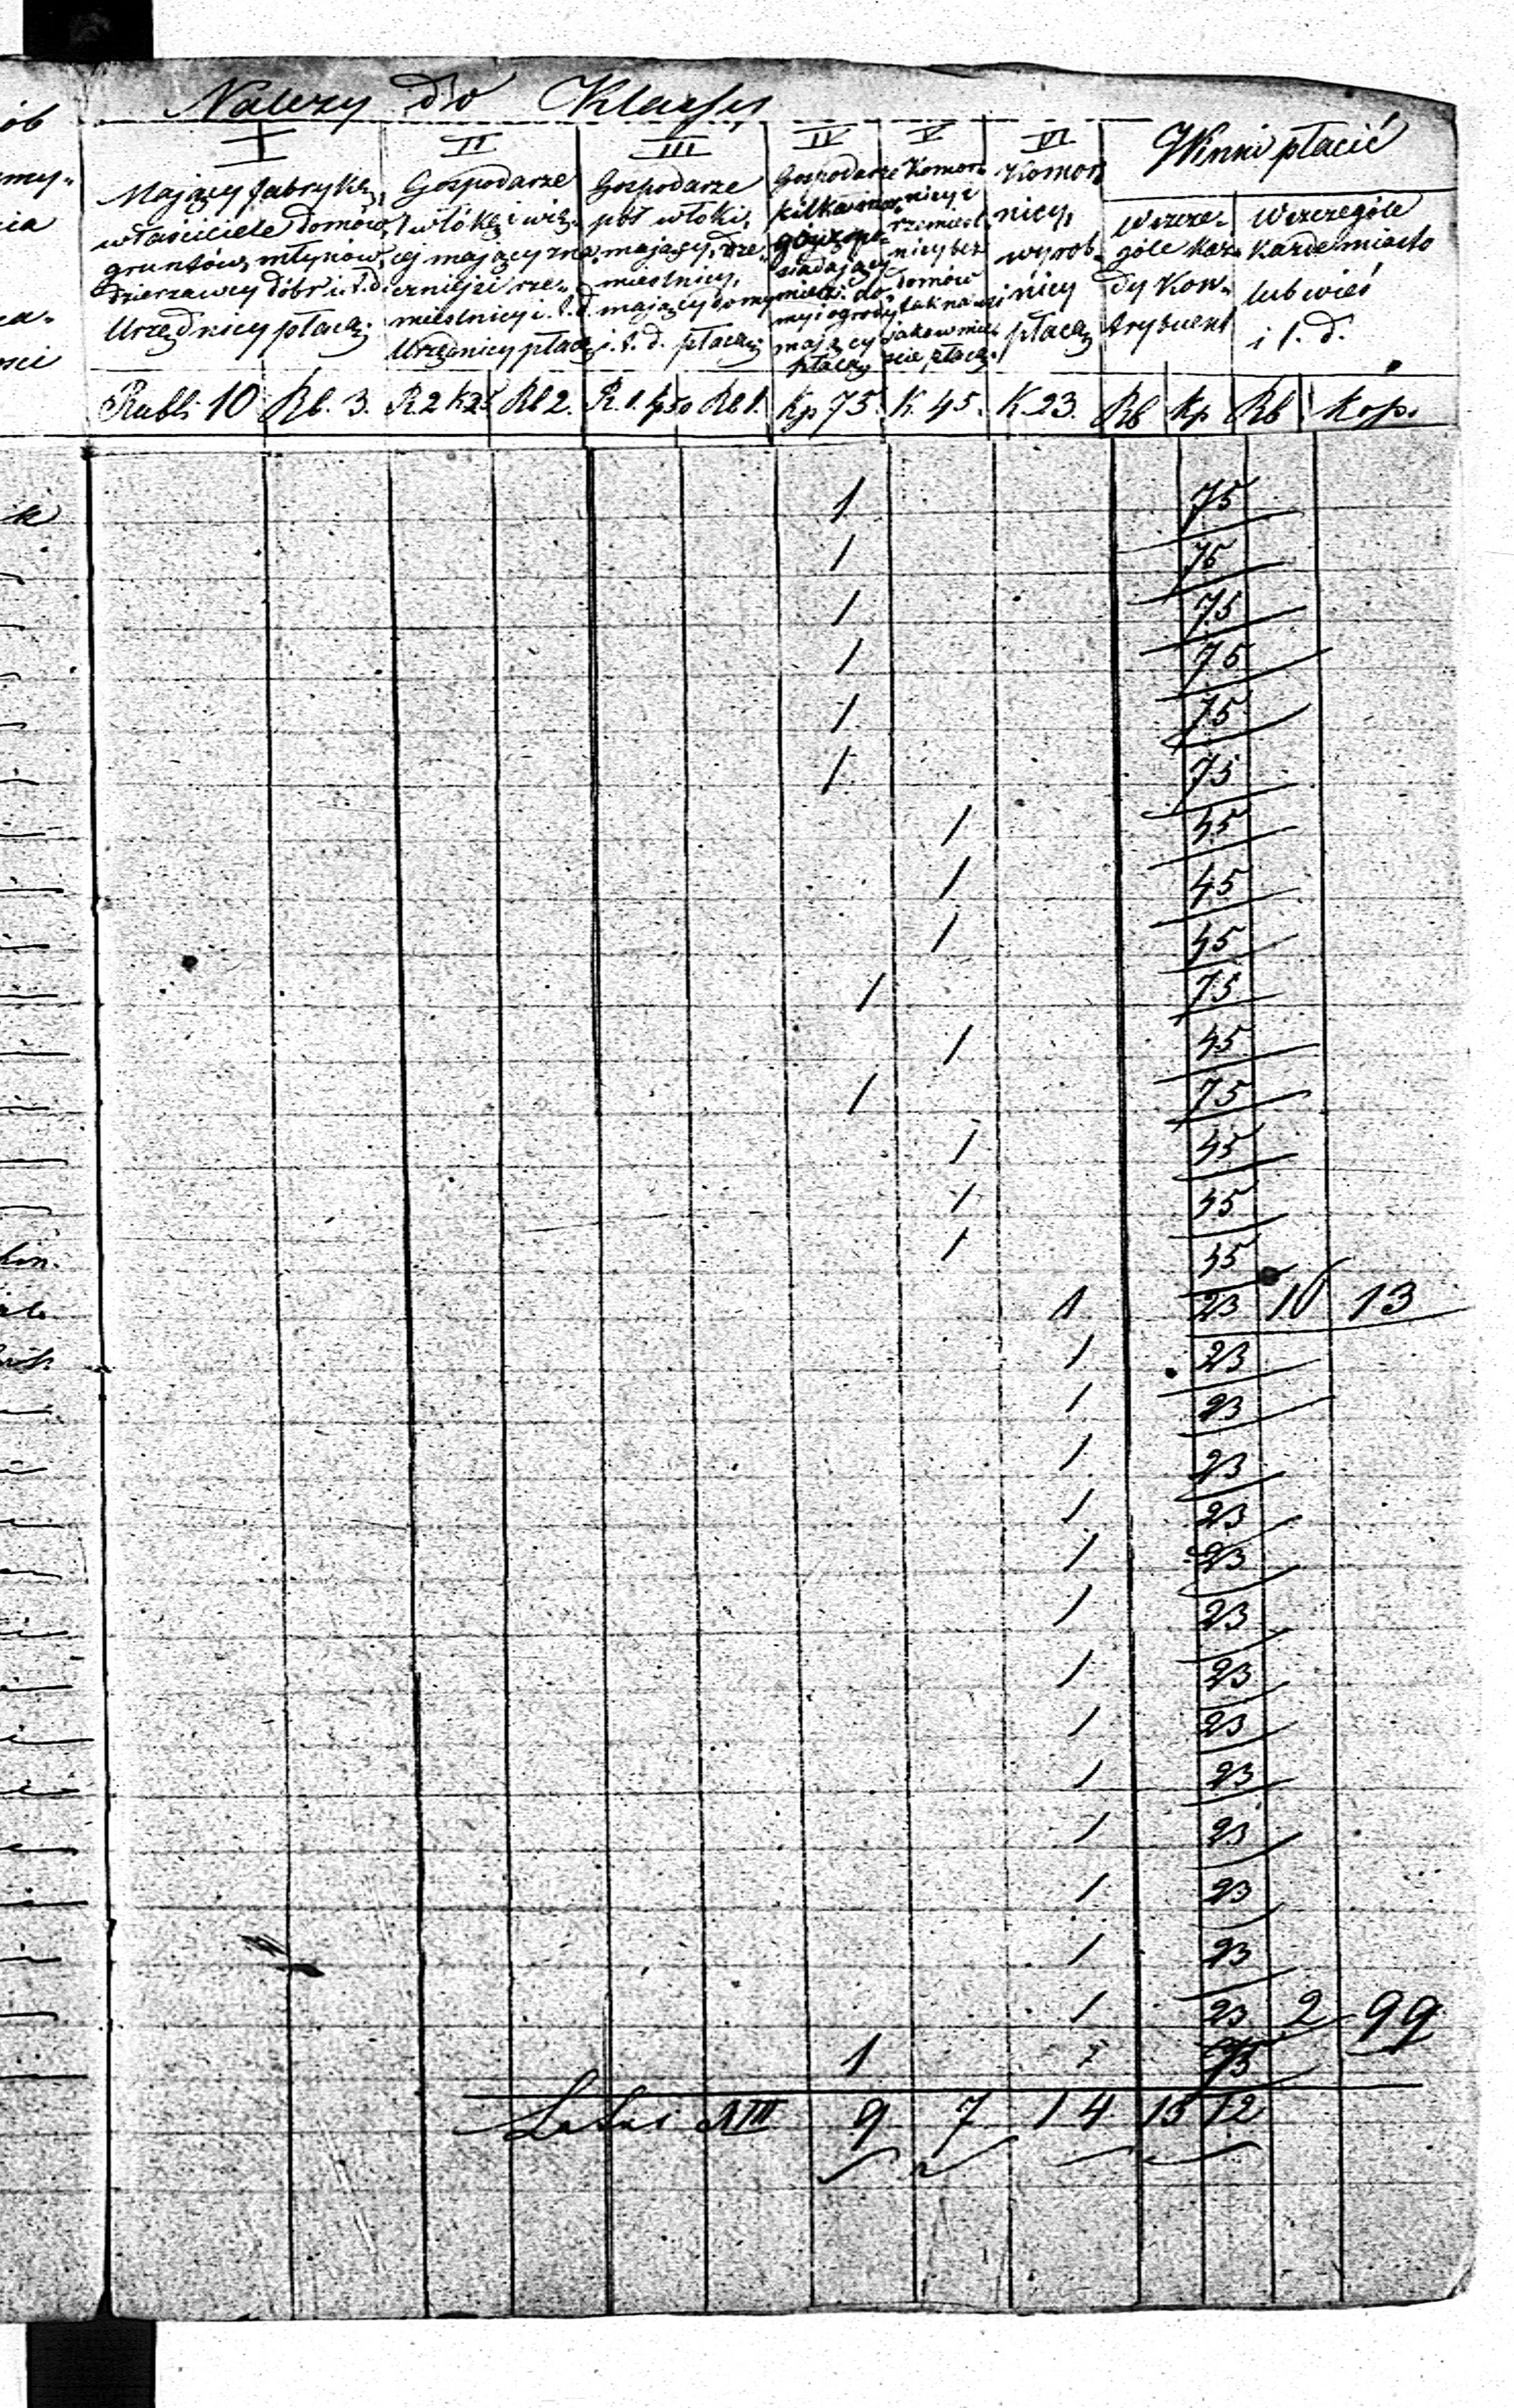 Należy do Klassy
I II III IV V VI Winni płacić
Mający fabrykę, właściciele domów, gruntów, młynów, dzierzawcy dóbr i.t.d. Urzędnicy płacą
Gospodarze 1 włókę i więcej mający znaczniejsi rzemieślnicy i.t.d. Urzędnicy płacą
Gospodarze pół włoki, mający, Rzemieślnicy, mający domy i.t.d. płacą
Gospodarze kilka mor. posiadający mający płacą
Komornicy i rzemieślnicy bez domów tak na wsi jako w mieście płacą
Komornicy, wyrobnicy płacą
w szczególe każdy Kontrybuent
w szczególe każde miasto lub wieś i t. d.
Rubli 10 Rb. 3. R 2 k 25 Rb 2. R. 1. k 50 Rb 1. Kp 75. K. 45. K. 23. Rb Kp Rb Kop.
1 75
1 75
1 75
1 75
1 75
1 75
1 45
1 45
1 45
1 75
1 45
1 75
1 45
1 45
1 45
1 23 10 13
1 23
1 23
1 23
1 23
1 23
1 23
1 23
1 23
1 23
1 23
1 23
1 23
1 23 2 99
1 75
Latus 9 7 14 13 12